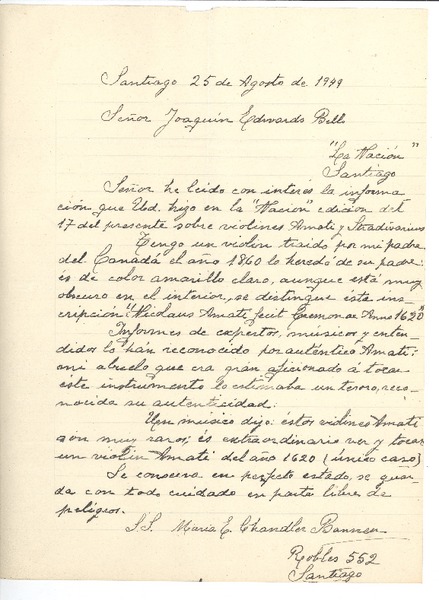 Santiago 25 de Agosto de 1949
Señor Joaquín Edwards Bello
"La Nación"
Santiago
Señor he leido con interés la informa
ción que Ud. hizo en la "Nación" edición del
17 del presente sobre violines Amati y Stradivarius
Tengo un violin traido por mi padre
del Canadá el año 1860 lo heredó de su padre:
és de color amarillo claro, aunque está muy
obscuro en el interior, se distingue ésta ins-
cripción "Nicolaus Amati fecit Cremonae Anno 1620"
Informes de expertos, músicos y enten-
didos lo han reconocido por auténtico Amati:
mi abuelo que era gran aficionado á tocar
éste instrumento lo estimaba un tesoro, reco-
nocida su autenticidad.
Un músico dijo: éstos violines Amati
son muy raros; és extraordinario ver y tocar
un violin Amati del año 1620 (único caso)
Se conserva en perfecto estado, se guar
da con todo cuidado en parte libre de
peligros.
S.S. Maria E. Chandler
Robles 552
Santiago